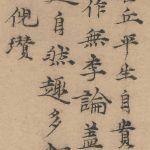 丘平生自貴
作無李論蓋
自然趣多
俛瓚